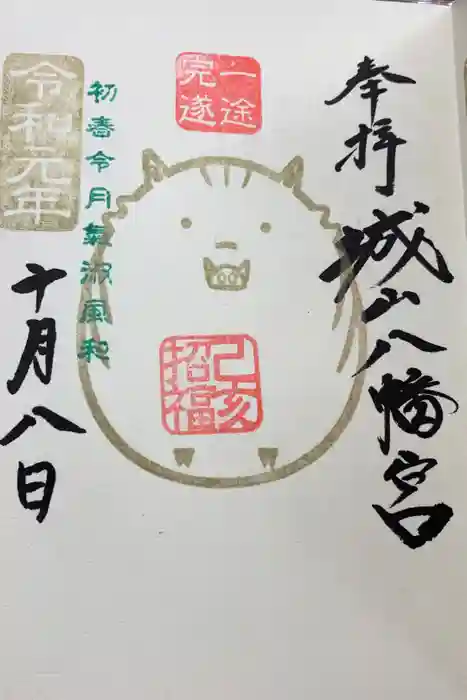 奉拝
城山八幡宮
一途
完遂
己亥
招福
初春令月氣淑風和
令和元年
十月八日